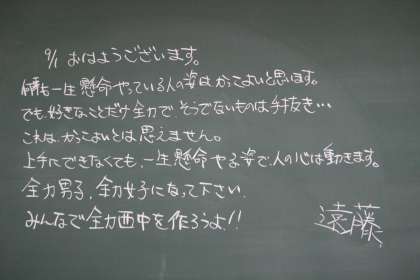 9/1 おはようございます。
何事も一生懸命やっている人の姿はかっこよいと思います。
でも、好きなことだけ全力で、そうでないものは手抜き…
これは、かっこよいとは思えません。
上手にできなくても、一生懸命やる姿で、人の心は動きます。
全力男子、全力女子になって下さい。
みんなで全力西中を作ろうよ!!
遠藤